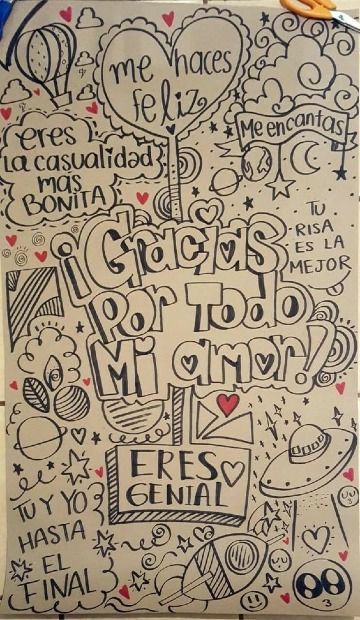 me haces
feliz
Me encantas
eres
La casualidad
mas
BONITA
TU
RISA
ES LA
MEJOR
¡Gracias
Por Todo
Mi amor!
ERES
GENIAL
TU Y YO
HASTA
EL
FINAL
3